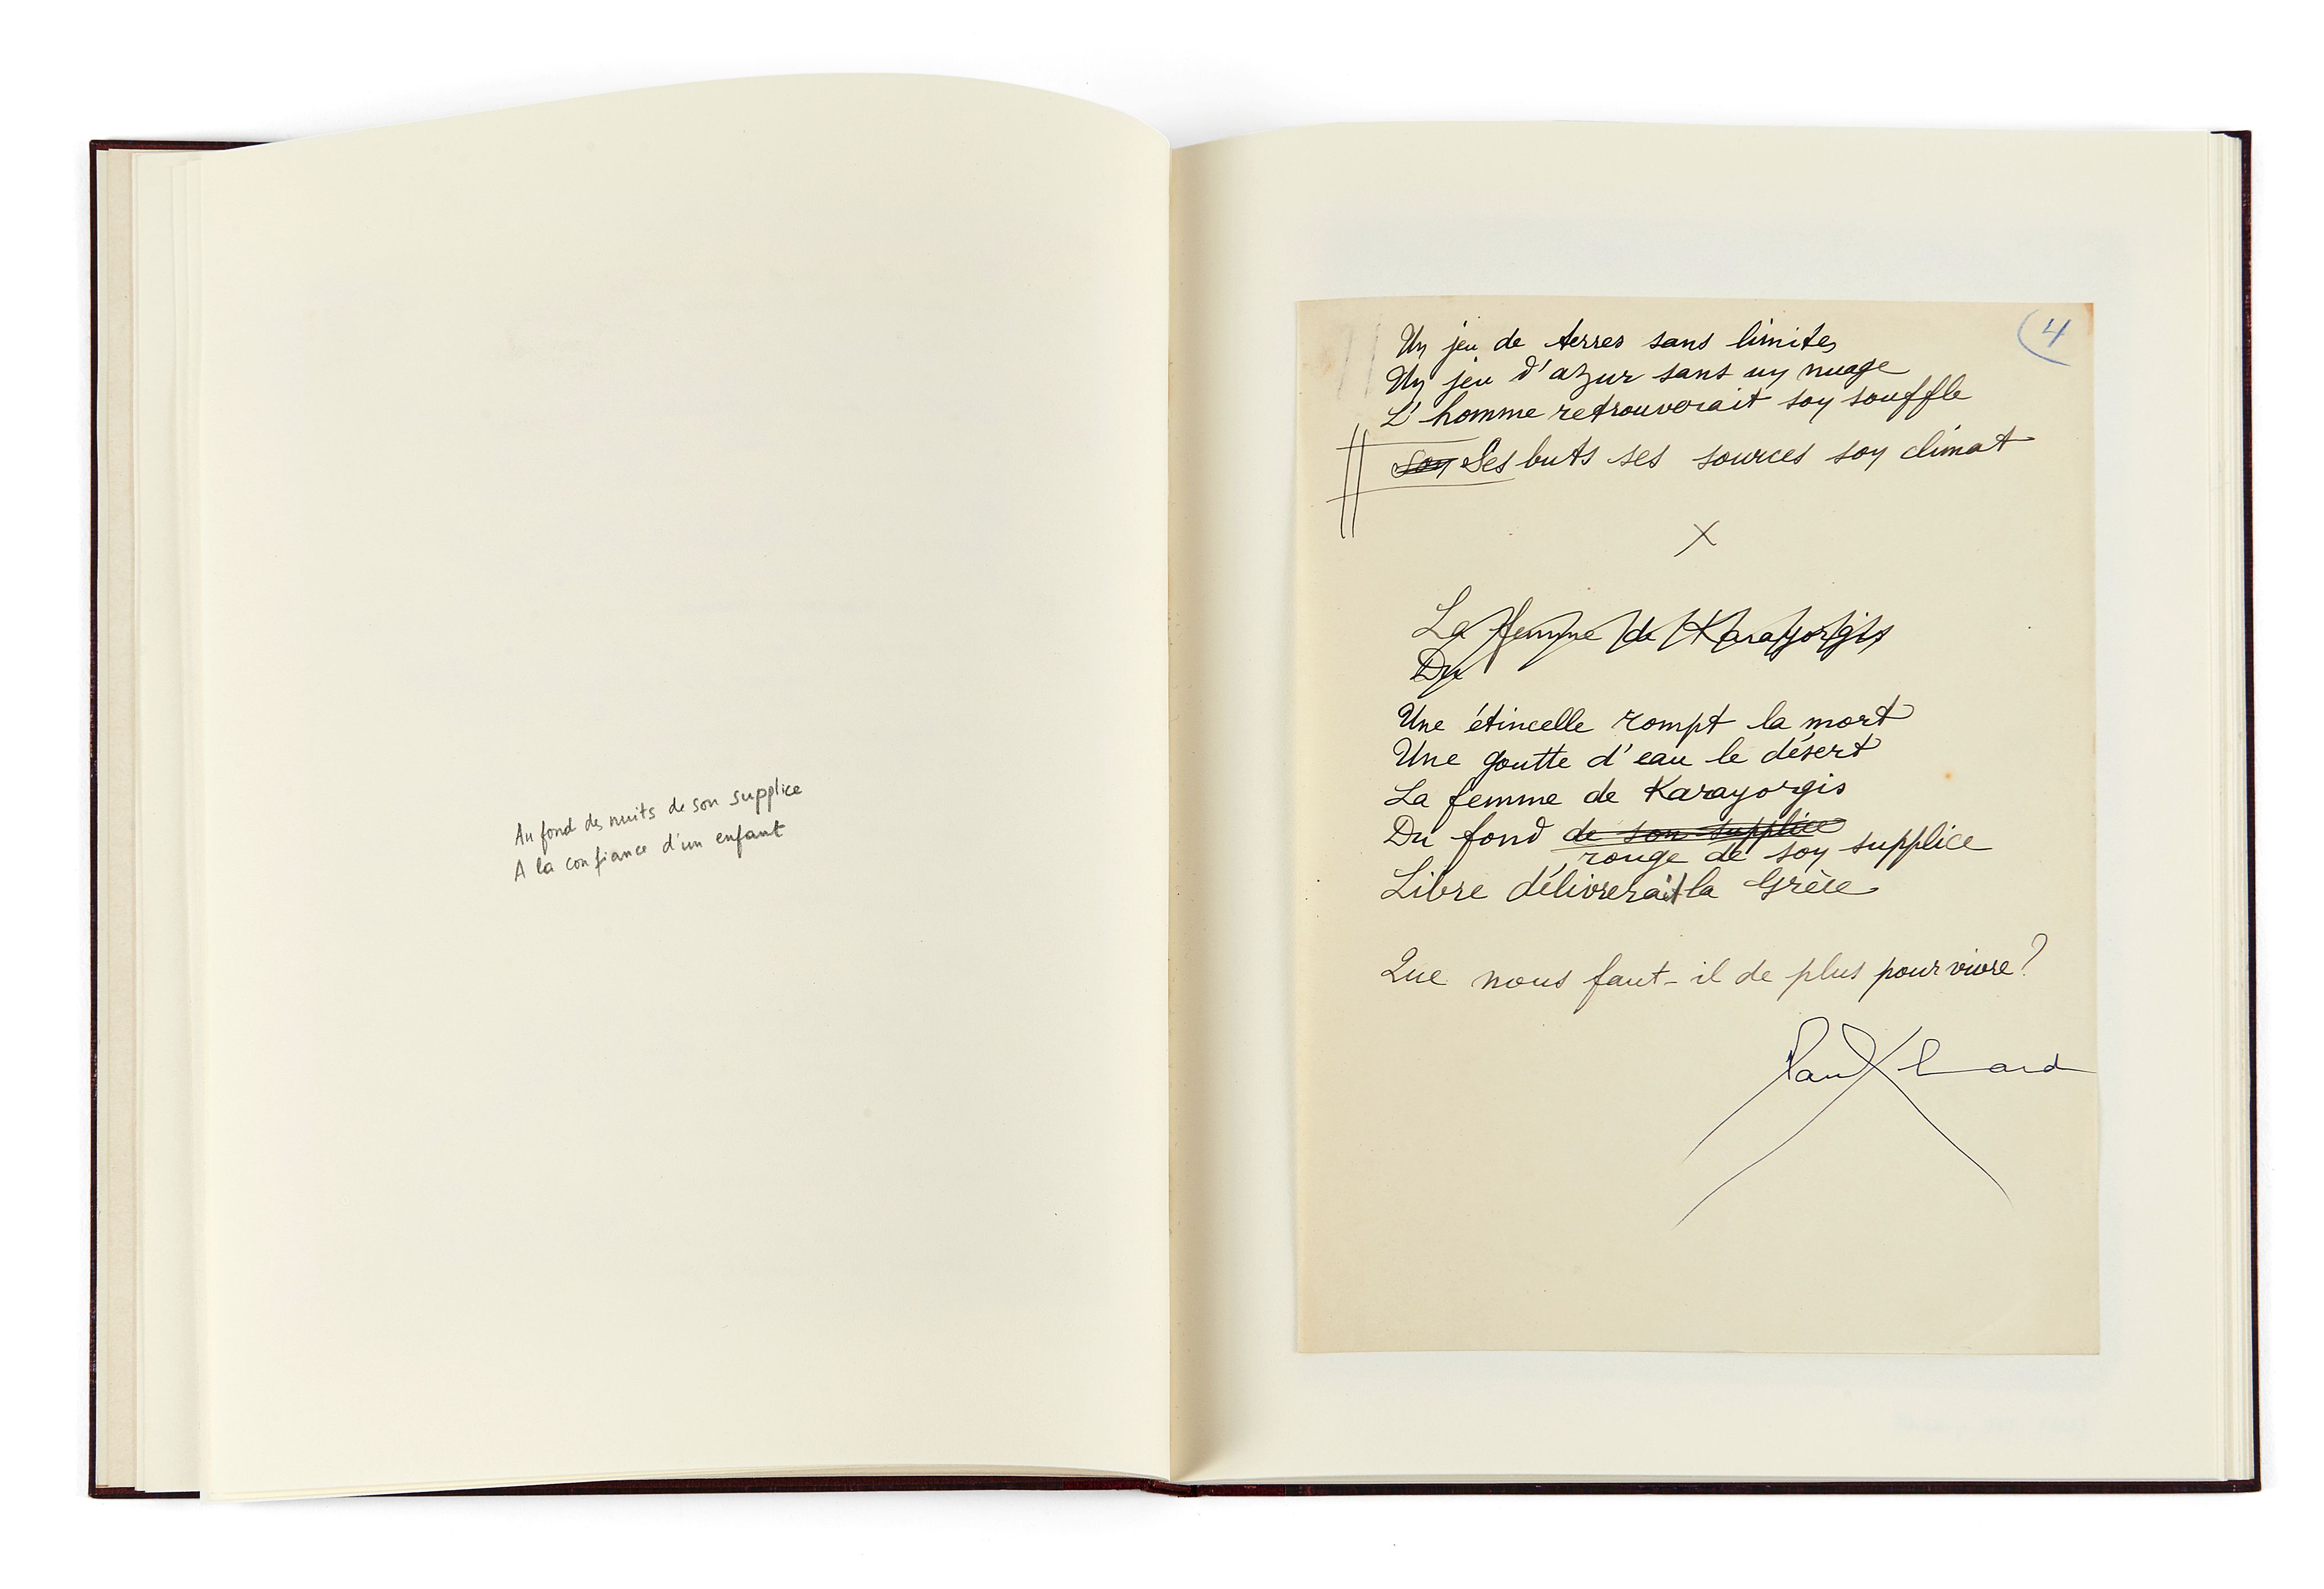 Au fond des nuits de son supplice
A la confiance d'un enfant
4
Un jeu de terres sans limites
Un jeu d'azur sans un nuage
L'homme retrouverait son souffle
son Ses buts ses sources son climat
X
La femme de Karayorgis
Du
Une étincelle rompt la mort
Une goutte d'eau le désert
La femme de Karayorgis
Du fond de son supplice
rouge de son supplice
Libre délivrerait la Grèce
Que nous faut-il de plus pour vivre?
Paul Eluard